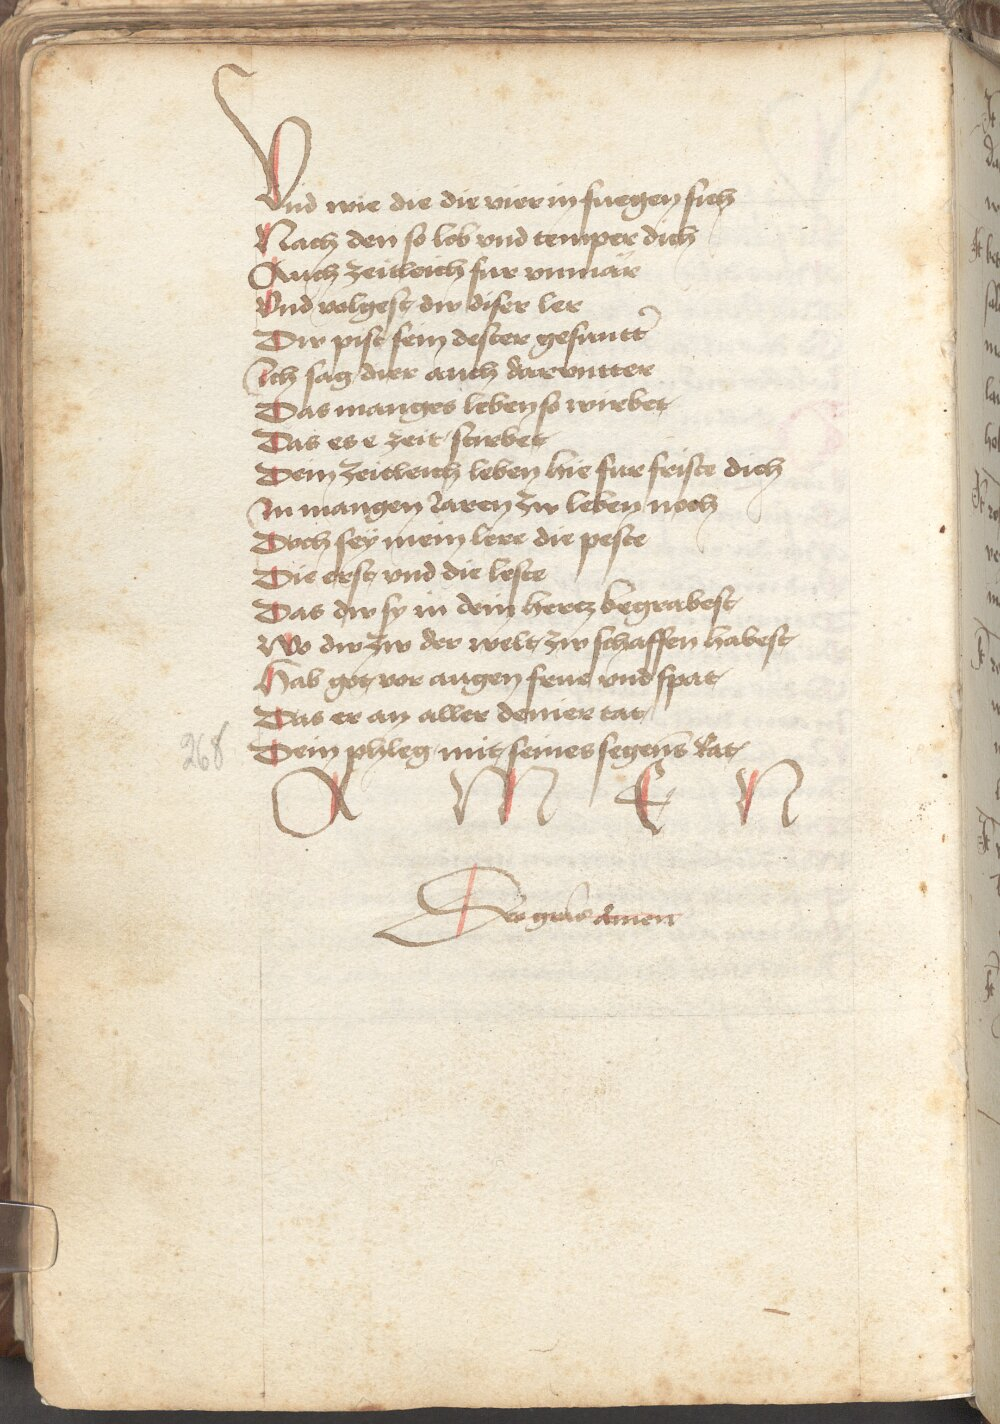 Vnd wie die die vier in fuegen sich
Nach den so leb vnd temper dich
Auch zeitleich fur vnmär
Vnd volgest dw diser ler
Dw pist sein dester gesuntter
Ich sag dier auch darvntter
Das manges leben so wirbet
Das es e zeit stirbet
Dein zeitleich leben hie fur friste dich
In mangen Jaren zw leben noch
Doch sey mein lere die peste
Die erst vnd die leste
Das dw sy in dein hertz begrabest
Wo dw zw der welt zw schaffen habest
Hab got vor augen frue vnd spat
Das er an aller deiner tat
Dein phleg mit seines segens Rat
268
A M E N
Deo gracias Amen